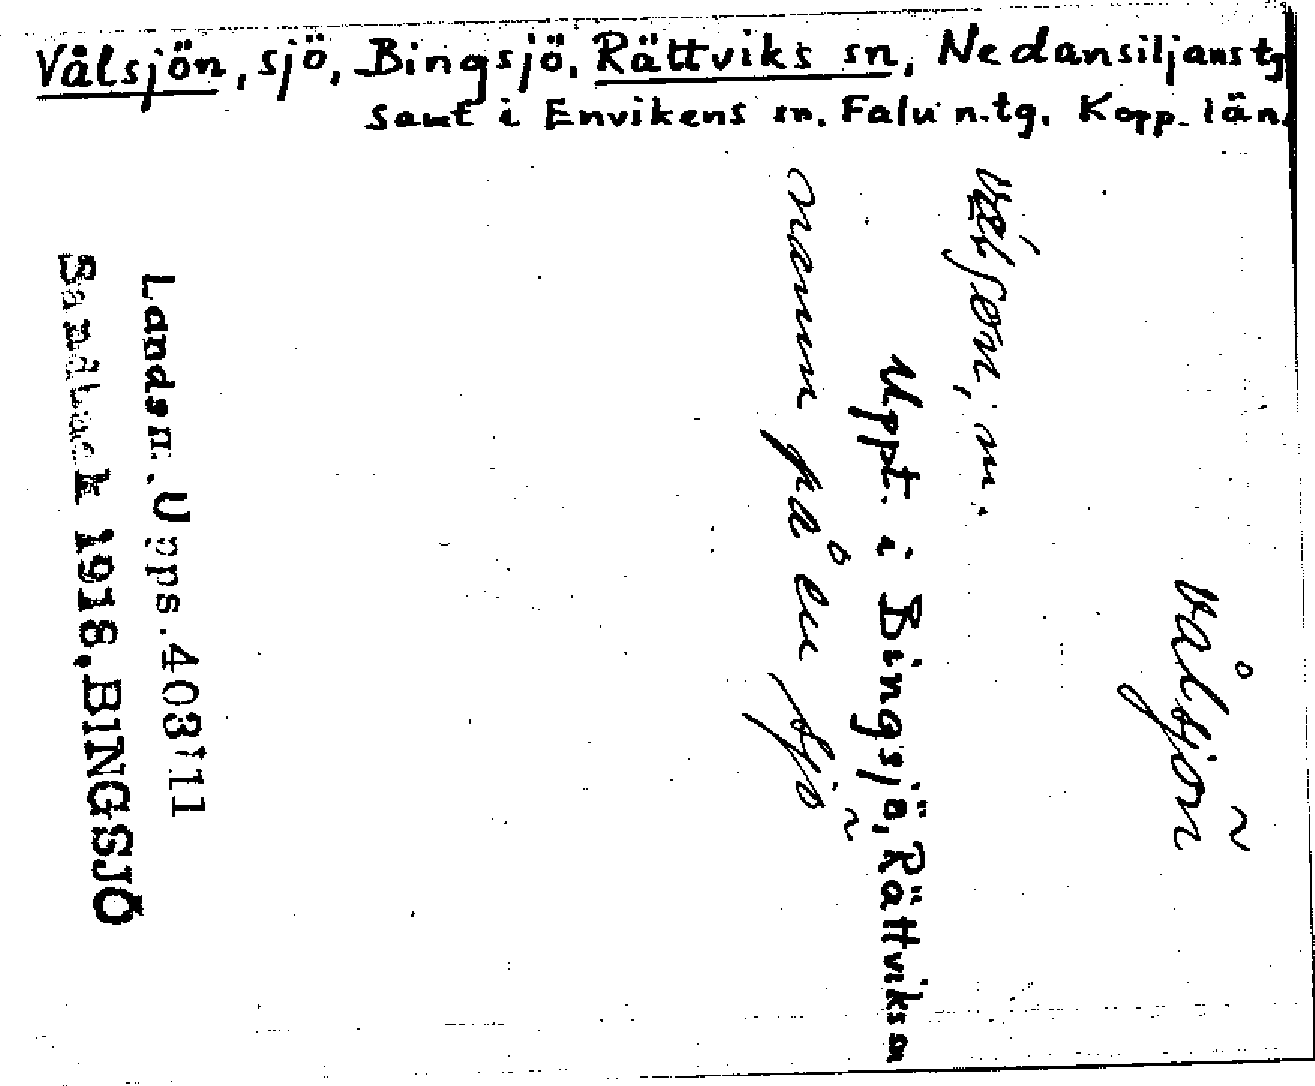 Vålsjön, sjö, Bingsjö, Rättviks sn, Nedansiljans tg
samt i Envikens sn. Falu n.tg. Kopp. län.
vålsjön
m.
Uppt. i Bingsjö, Rättviks sn
namn på en sjö
Landsm. Upps. 403:11
Sandback 1918. BINGSJÖ